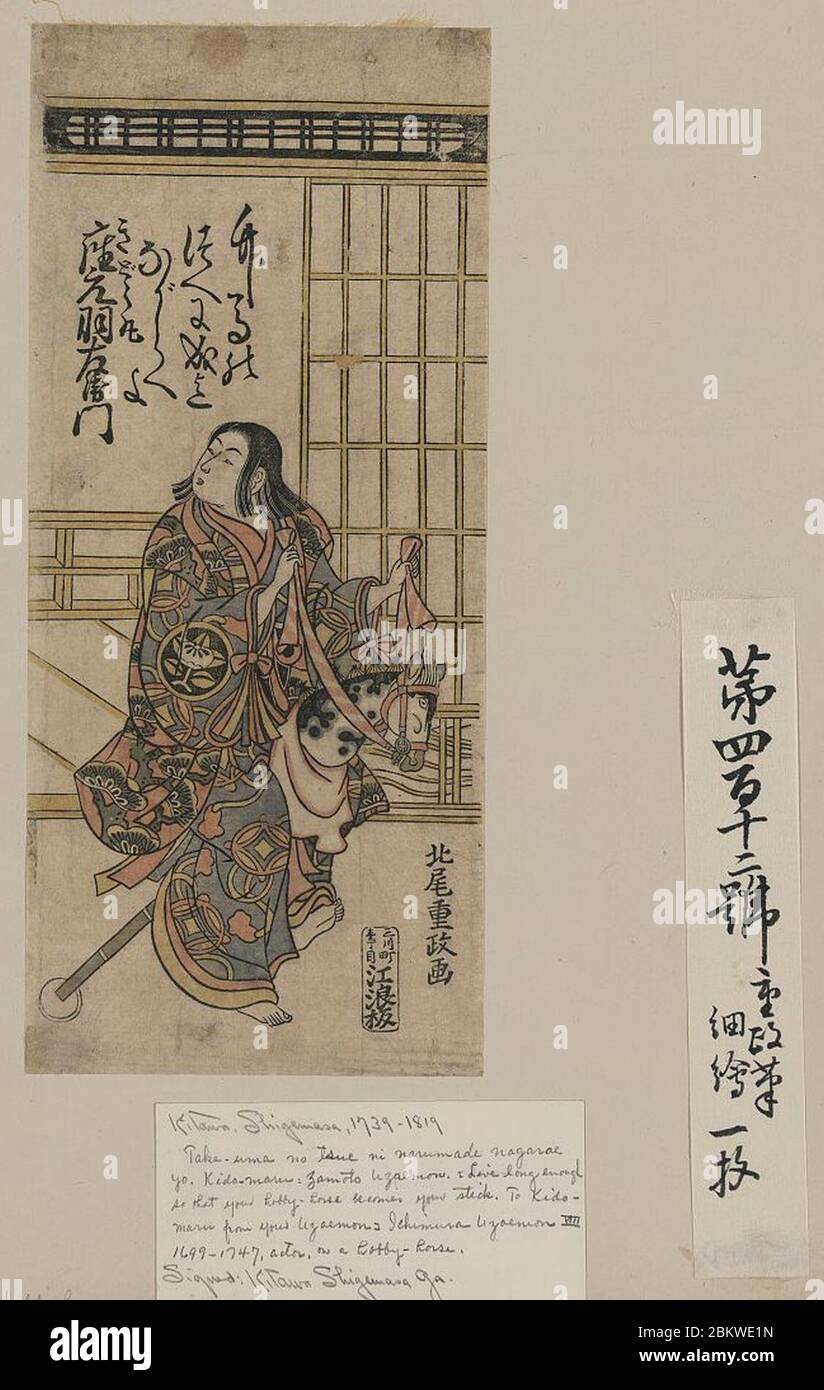 竹馬の
つえになる迄
ながらへよ
きどう丸
座元羽左衛門
北尾重政画
江浪板
第四百十二號
重政筆
細繪一枚
Kitawo, Shigemasa, 1739-1819
Take-uma no tsue ni narumade nagarae
yo. Kido-maru: Zamoto Uzaemon. : Live long enough
so that your hobby-horse becomes your stick. To Kido-
maru from your Uzaemon = Ichimura Uzaemon VIII
1699-1747, actor, on a hobby-horse.
Signed: Kitawo Shigemasa ga.
alamy
alamy
Image ID: 2BKWE1N
www.alamy.com